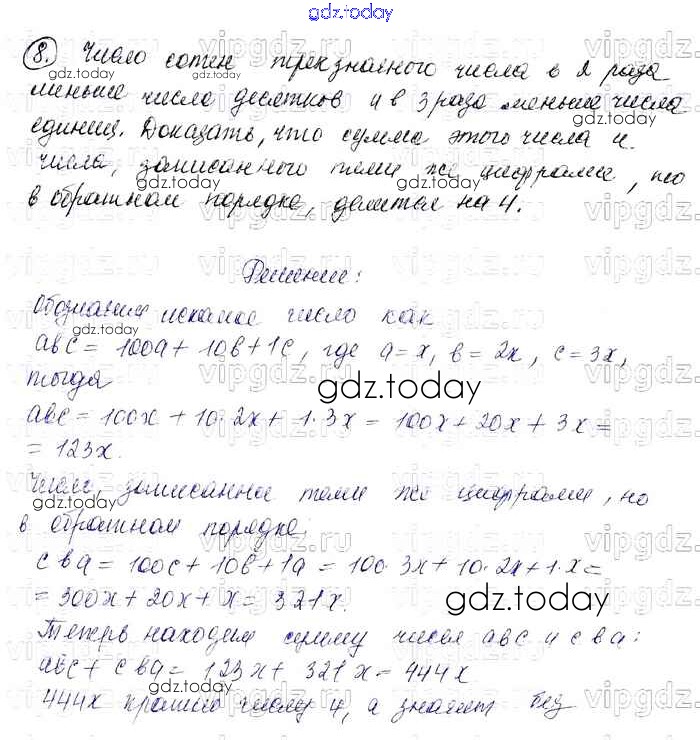 gdz.today
8. Число сотен трехзначного числа в 2 раза
меньше число десятков и в 3 раза меньше числа
единиц. Доказать, что сумма этого числа и
числа, записанного теми же цифрами, но
в обратном порядке, делится на 4.
Решение:
Обозначим искомое число как
abc = 100a + 10b + 1c, где a = x, b = 2x, c = 3x,
тогда
abc = 100x + 10·2x + 1·3x = 100x + 20x + 3x =
= 123x.
Число, записанное теми же цифрами, но
в обратном порядке:
cba = 100c + 10b + 1a = 100·3x + 10·2x + 1·x =
= 300x + 20x + x = 321x.
Теперь находим сумму чисел abc и cba:
abc + cba = 123x + 321x = 444x
444x кратно числу 4, а значит без